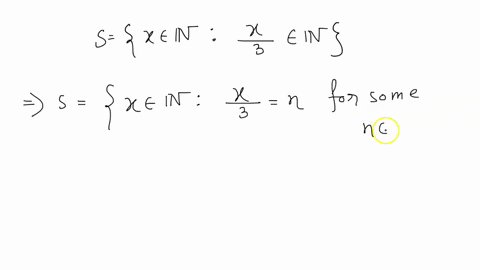 S = { x ∈ ℕ : x/3 ∈ ℕ }
⇒ S = { x ∈ ℕ : x/3 = n for some
n